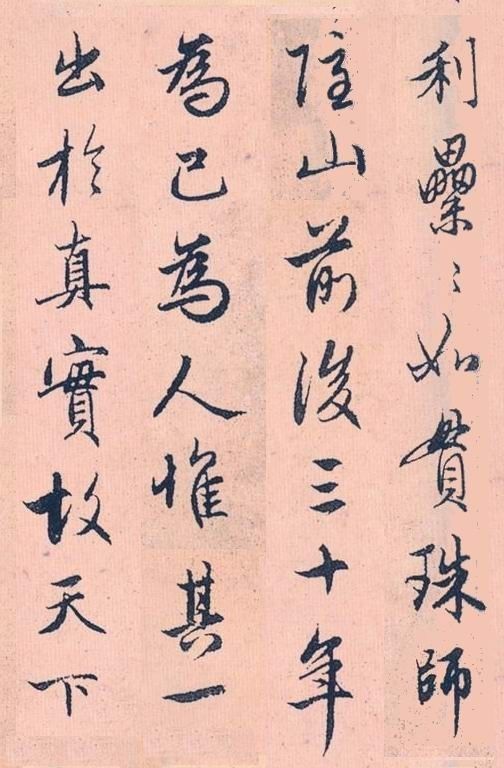 利纍々如貫珠師
住山前後三十年
為己為人惟其一
出於真實故天下